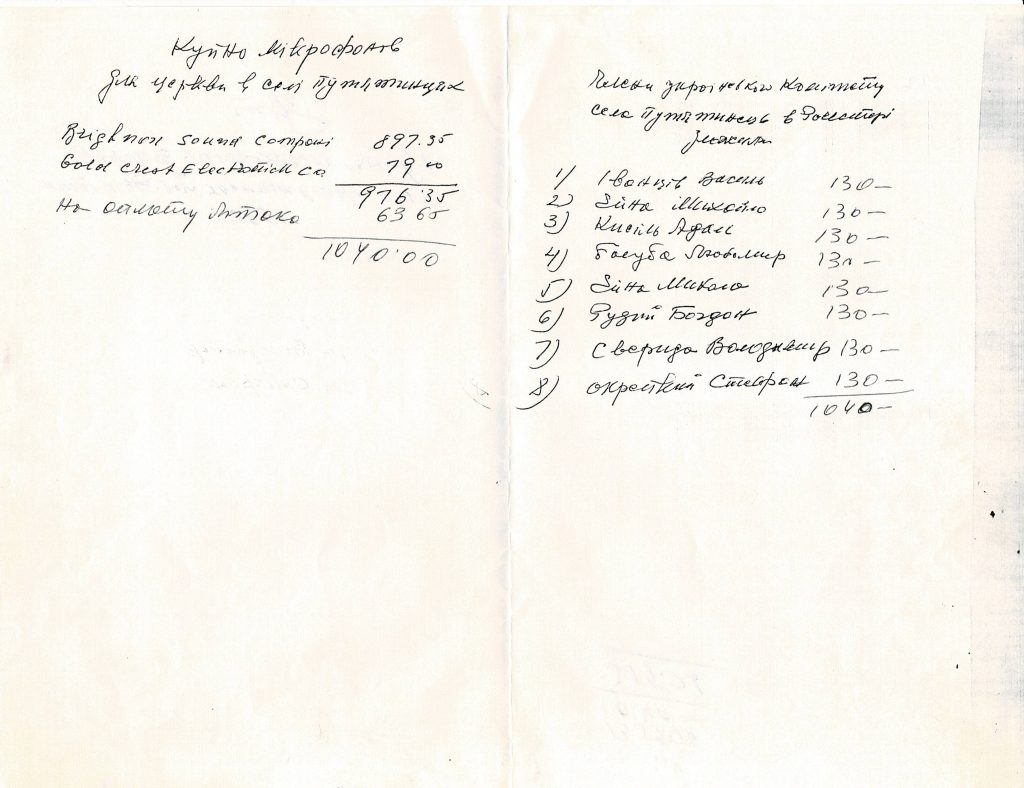 Купно мікрофонів
для церкви в селі Путятинцях
Brighnon Sound Compani 897.35
Gold Crest Electronick Co 79 00
976.35
На оплату 63 65
1040.00
Члени українського Комітету
села Путятинців в Рочестері
1) Іванців Василь 130—
2) Зіна Михайло 130—
3) Кисіль Адам 130—
4) Голуба Любомир 130—
5) Зіна Микола 130—
6) Рудий Богдан 130—
7) Сверида Володимир 130—
8) Окрепкий Стефан 130—
1040—